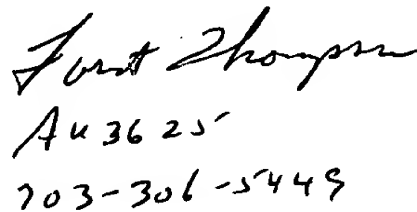 Forrest Thompson
AU 3625
703-306-5449